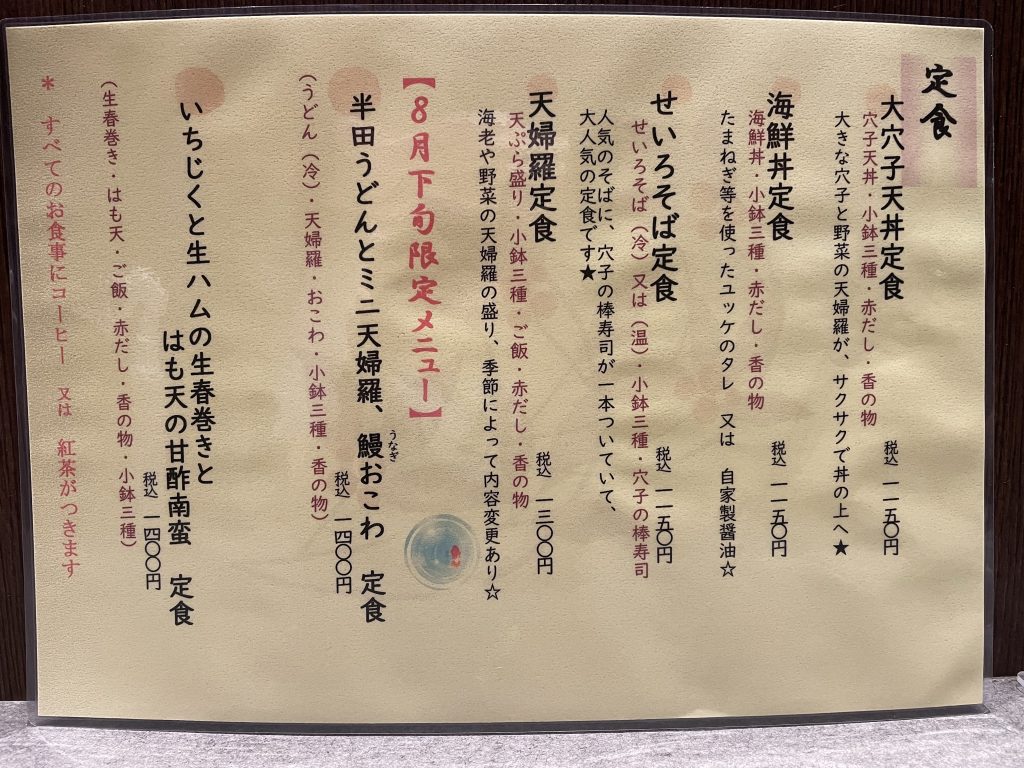 定食
大穴子天丼定食
穴子天丼・小鉢三種・赤だし・香の物
税込 一一五〇円
大きな穴子と野菜の天婦羅が、サクサクで丼の上へ★
海鮮丼定食
海鮮丼・小鉢三種・赤だし・香の物
税込 一一五〇円
たまねぎ等を使ったユッケのタレ 又は 自家製醤油☆
せいろそば定食
せいろそば（冷）又は（温）・小鉢三種・穴子の棒寿司
税込 一一五〇円
人気のそばに、穴子の棒寿司が一本ついていて、
大人気の定食です★
天婦羅定食
天ぷら盛り・小鉢三種・ご飯・赤だし・香の物
税込 一三〇〇円
海老や野菜の天婦羅の盛り、季節によって内容変更あり☆
【８月下旬限定メニュー】
半田うどんとミニ天婦羅、鰻おこわ 定食
うなぎ
税込 一四〇〇円
（うどん（冷）・天婦羅・おこわ・小鉢三種・香の物）
いちじくと生ハムの生春巻きと
はも天の甘酢南蛮 定食
税込 一四〇〇円
（生春巻き・はも天・ご飯・赤だし・香の物・小鉢三種）
＊ すべてのお食事にコーヒー 又は 紅茶がつきます